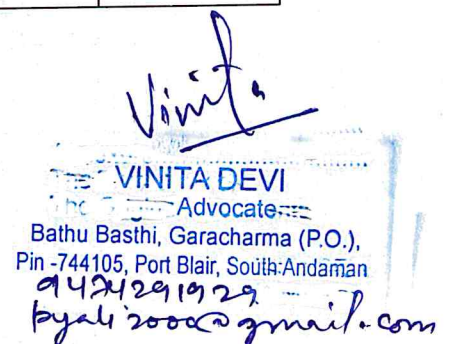 Vinita
VINITA DEVI
Advocate
Bathu Basthi, Garacharma (P.O.),
Pin -744105, Port Blair, South Andaman
9474291929
byali2000@gmail.com